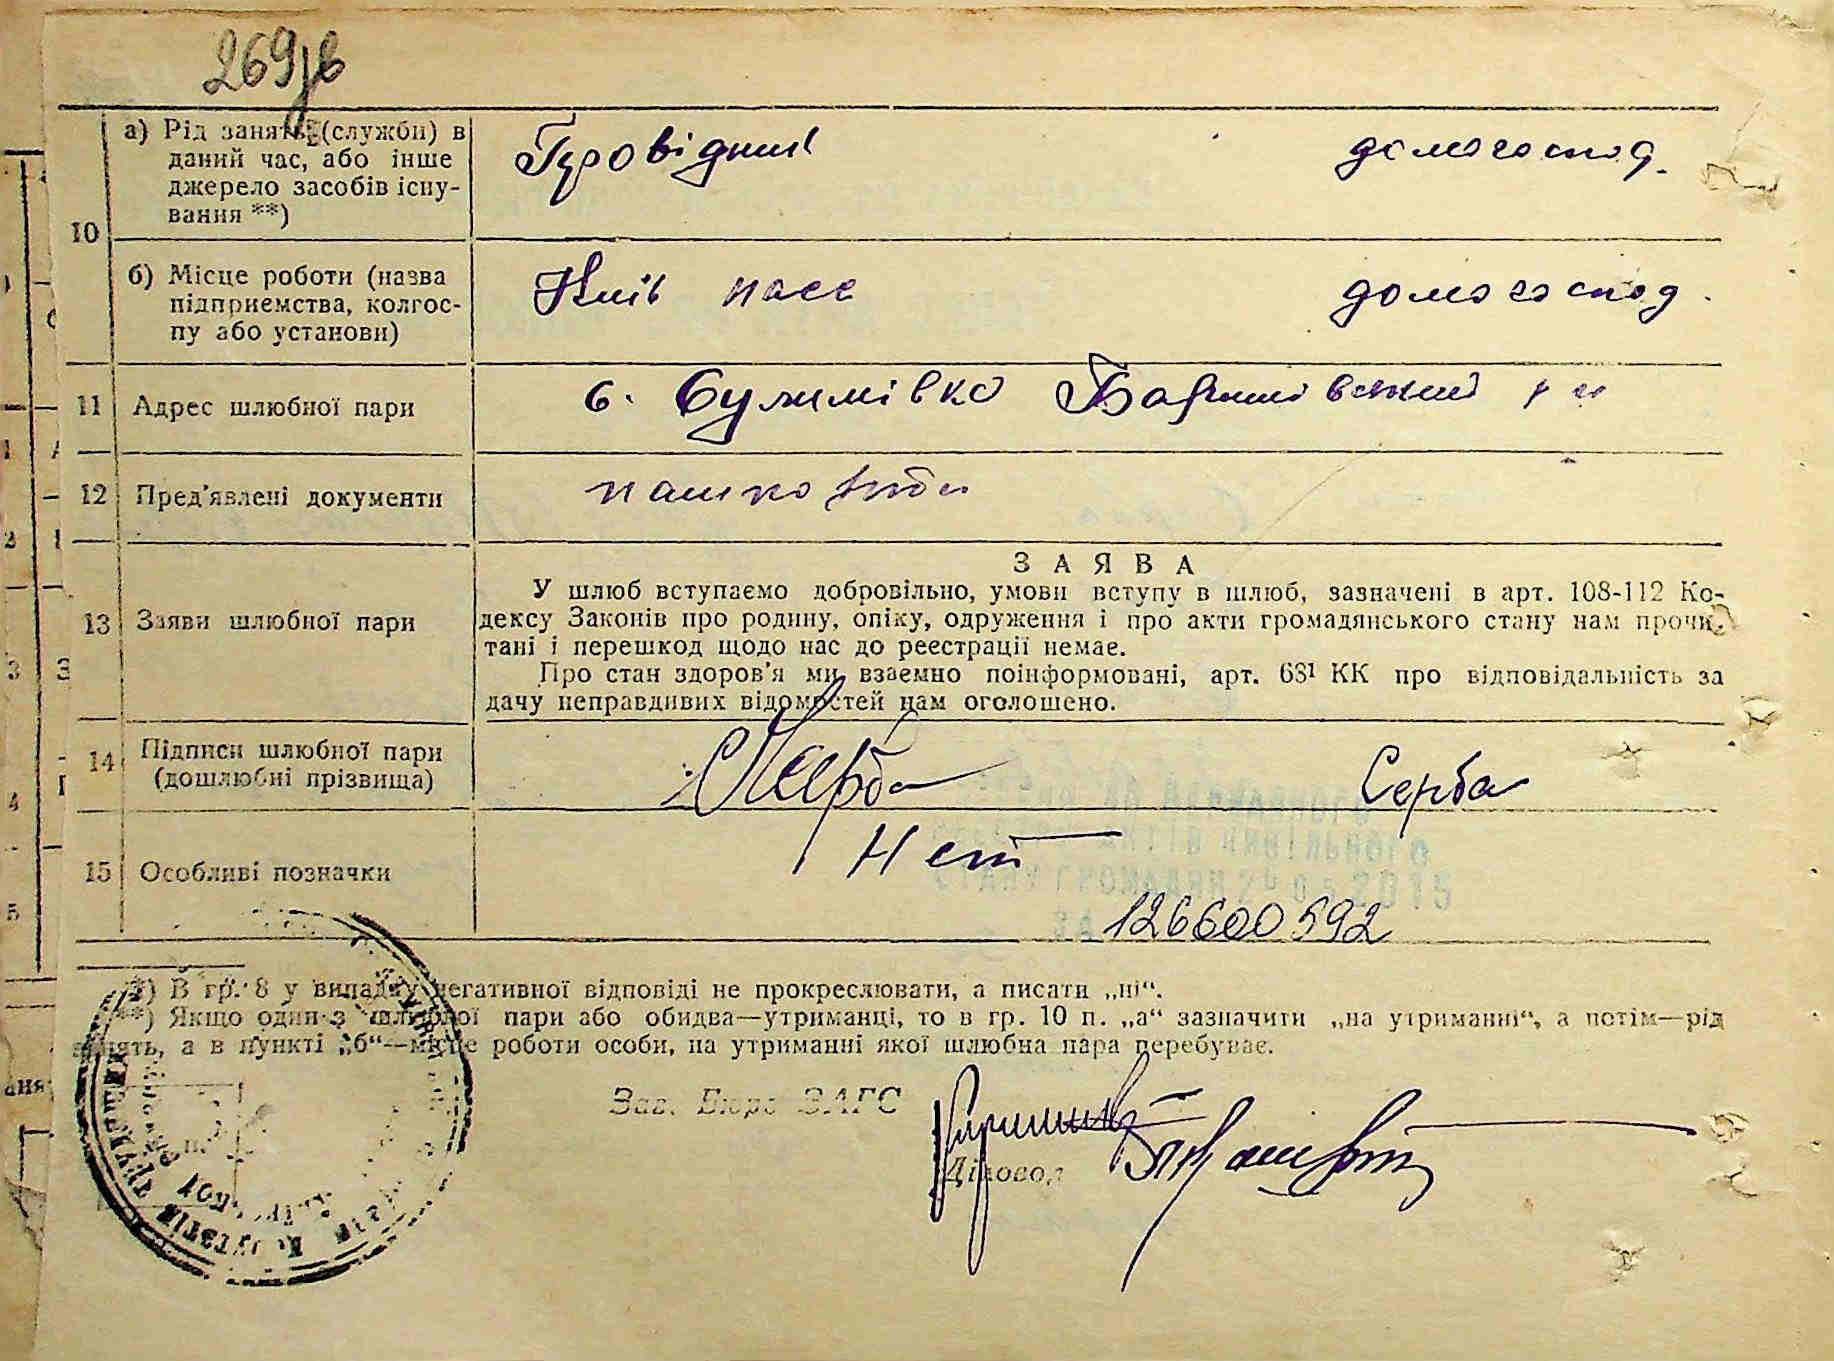 269зв
10
а) Рід занять (служби) в
даний час, або інше
джерело засобів існу-
вання **)
Провідник домогоспод.
б) Місце роботи (назва
підприємства, колгос-
пу або установи)
Київ пасс домогоспод.
11 Адрес шлюбної пари
с. Сулимівка Баришівський р н
12 Пред'явлені документи
13 Заяви шлюбної пари
ЗАЯВА
У шлюб вступаємо добровільно, умови вступу в шлюб, зазначені в арт. 108-112 Ко-
дексу Законів про родину, опіку, одруження і про акти громадянського стану нам прочи-
тані і перешкод щодо нас до реестрації немає.
Про стан здоров'я ми взаємно поінформовані, арт. 68¹ КК про відповідальність за
дачу неправдивих відомостей нам оголошено.
14 Підписи шлюбної пари
(дошлюбні прізвища)
Серба
15 Особливі позначки
Нет
126600592
*) В гр. 8 у випадку негативної відповіді не прокреслювати, а писати „ні“.
**) Якщо один з шлюбної пари або обидва—утриманці, то в гр. 10 п. „а“ зазначити „на утриманні“, а потім—рід
занять, а в пункті „б“—місце роботи особи, на утриманні якої шлюбна пара перебуває.
Зав. Бюро ЗАГС
Діловод